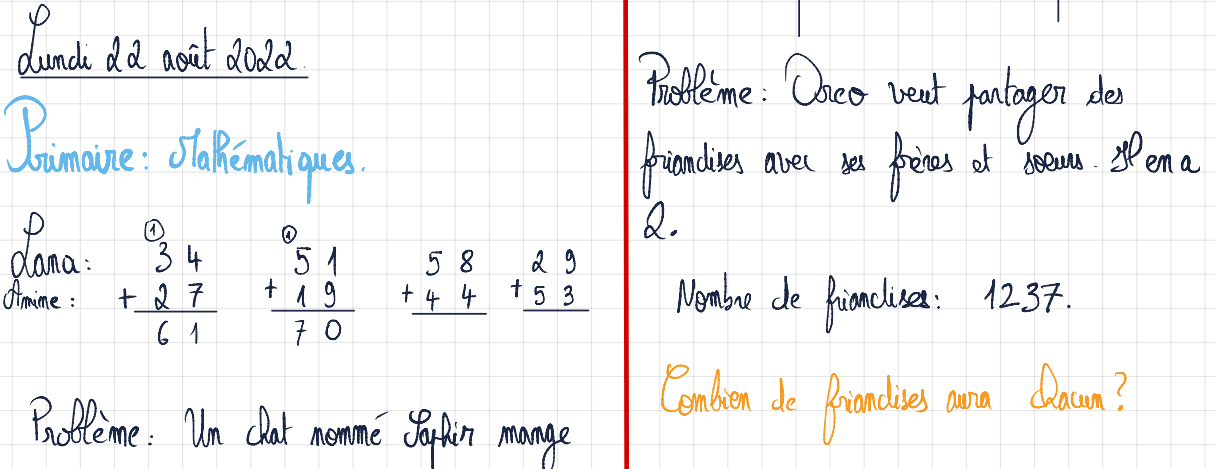 Lundi 22 août 2022.
Primaire: Mathématiques.
① ①
Lana: 3 4 5 1 5 8 2 9
Amine: + 2 7 + 1 9 + 4 4 + 5 3
6 1 7 0
Problème: Un chat nommé Saphir mange
Problème: Orco veut partager des
friandises avec ses frères et soeurs. Il en a
2.
Nombre de friandises: 1237.
Combien de friandises aura chacun?